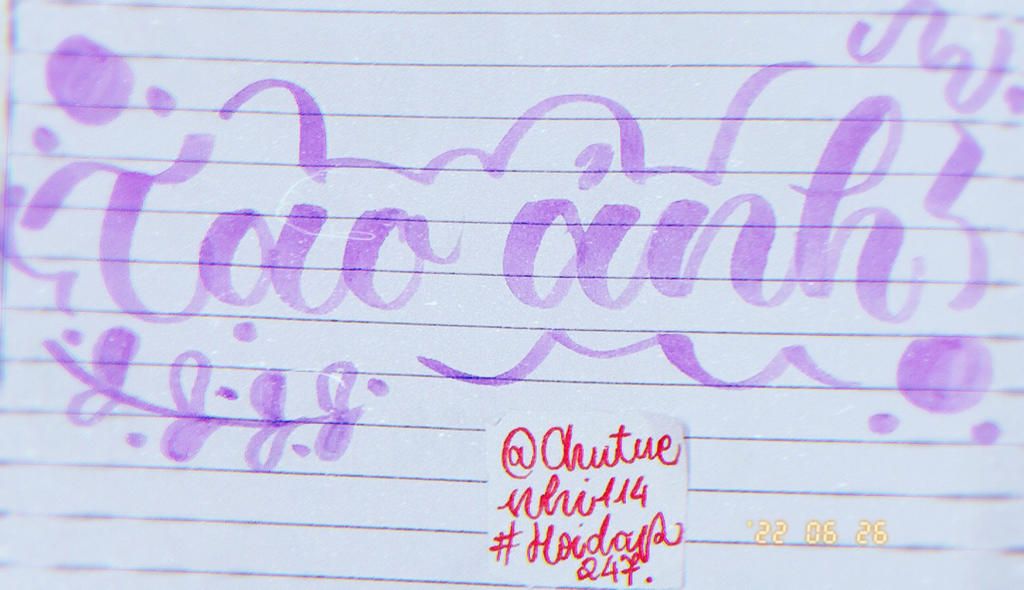 Tạo ảnh
@Chutue
nhi1114
#Hoidap
247.
'22 06 26